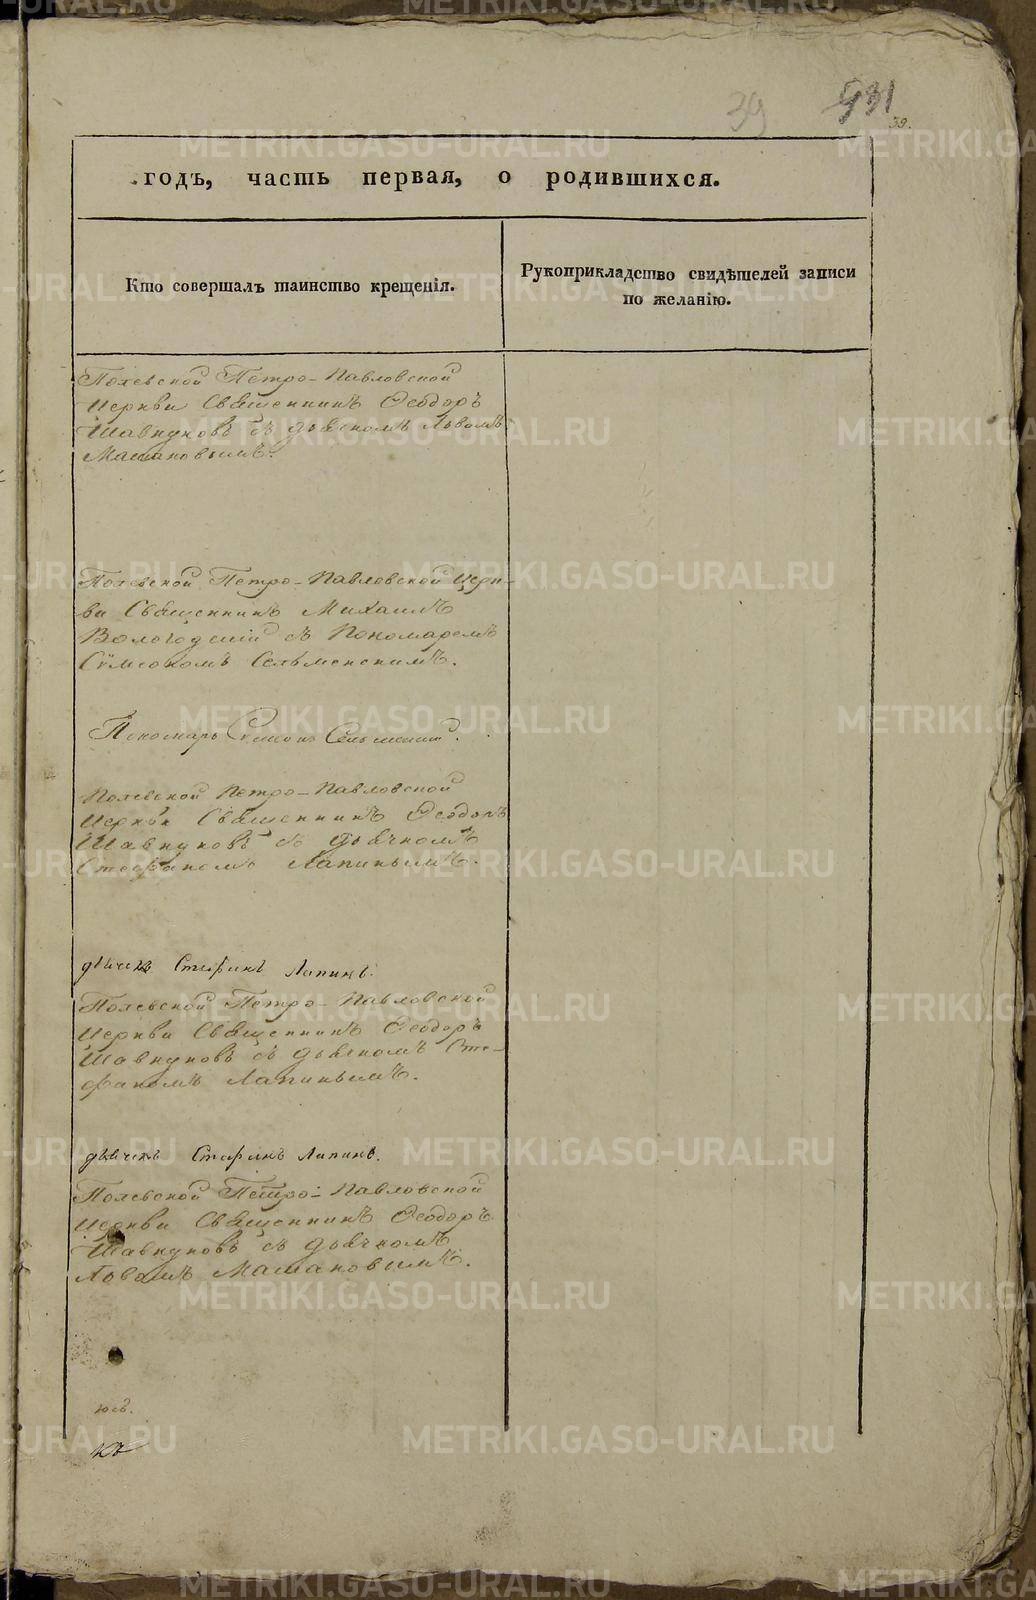 39
931
39.
годъ, часть первая, о родившихся.
Кто совершалъ таинство крещенія.
Рукоприкладство свидѣтелей записи
по желанію.
Полевской Петро-Павловской
Церкви Священникъ Ѳеодоръ
Шавкуновъ съ дьячкомъ Львомъ
Машановымъ.
Полевской Петро-Павловской Церк-
ви Священникъ Михаилъ
Вологодскій съ Пономаремъ
Сѵмеономъ Сельменскимъ.
Пономарь
Полевской Петро-Павловской
Церкви Священникъ Ѳеодоръ
Шавкуновъ съ дьячкомъ
Стефаномъ Лапинымъ.
дьячекъ Стефанъ Лапинъ.
Полевской Петро-Павловской
Церкви Священникъ Ѳеодоръ
Шавкуновъ съ дьячкомъ Сте-
фаномъ Лапинымъ.
дьячекъ Стефанъ Лапинъ.
Полевской Петро-Павловской
Церкви Священникъ Ѳеодоръ
Шавкуновъ съ дьячкомъ
Львомъ Машановымъ.
METRIKI.GASO-URAL.RU